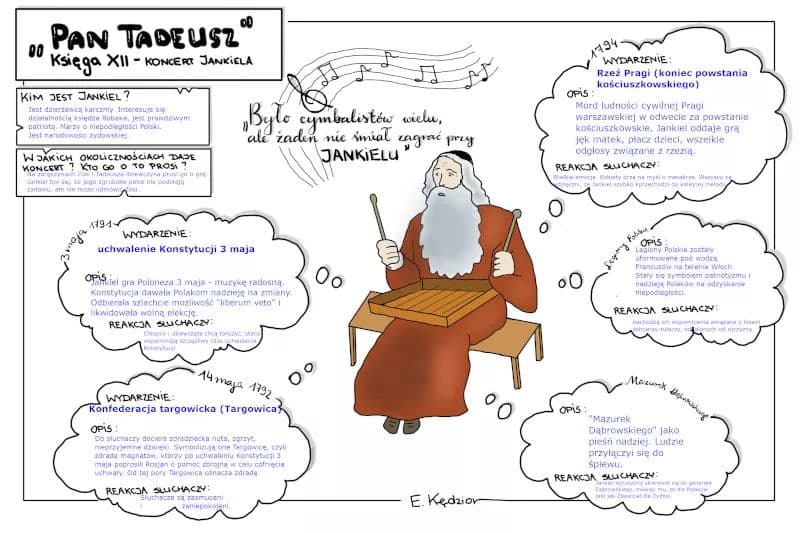 „PAN TADEUSZ"
KSIĘGA XII - KONCERT JANKIELA
KIM JEST JANKIEL?
Jest dzierżawcą karczmy. Interesuje się
działalnością księdza Robaka, jest prawdziwym
patriotą. Marzy o niepodległości Polski.
Jest narodowości żydowskiej.
W JAKICH OKOLICZNOŚCIACH DAJE
KONCERT? KTO GO O TO PROSI?
Na zaręczynach Zosi i Tadeusza dziewczyna prosi go o grę.
Jankiel boi się, że jego zgrubiałe palce nie podołają
zadaniu, ale nie może odmówić Zosi.
„Było cymbalistów wielu,
ale żaden nie śmiał zagrać przy
JANKIELU"
3 maja 1791
WYDARZENIE:
uchwalenie Konstytucji 3 maja
OPIS:
Jankiel gra Poloneza 3 maja - muzykę radosną.
Konstytucja dawała Polakom nadzieję na zmiany.
Odbierała szlachcie możliwość "liberum veto" i
likwidowała wolną elekcję.
REAKCJA SŁUCHACZY:
Chłopcy i dziewczęta chcą tańczyć, starsi
wspominają szczęśliwy czas uchwalenia
Konstytucji.
14 maja 1792
WYDARZENIE:
Konfederacja targowicka (Targowica)
OPIS:
Do słuchaczy dociera zdradziecka nuta, zgrzyt,
nieprzyjemne dźwięki. Symbolizują one Targowicę, czyli
zdradę magnatów, którzy po uchwaleniu Konstytucji 3
maja poprosili Rosjan o pomoc zbrojną w celu cofnięcia
uchwały. Od tej pory Targowica oznacza zdradę.
REAKCJA SŁUCHACZY:
Słuchacze są zasmuceni
i zaniepokojeni.
1794
WYDARZENIE:
Rzeź Pragi (koniec powstania
kościuszkowskiego)
OPIS:
Mord ludności cywilnej Pragi
warszawskiej w odwecie za powstanie
kościuszkowskie. Jankiel oddaje grą
jęk matek, płacz dzieci, wszelkie
odgłosy związane z rzezią.
REAKCJA SŁUCHACZY:
Wielkie emocje. Kobiety drżą na myśl o masakrze. Wszyscy są
wdzięczni, że Jankiel szybko przechodzi do kolejnej melodii.
Legiony Polskie
OPIS:
Legiony Polskie zostały
uformowane pod wodzą
Francuzów na terenie Włoch.
Stały się symbolem patriotyzmu i
nadzieją Polaków na odzyskanie
niepodległości.
REAKCJA SŁUCHACZY:
Nachodzą ich wspomnienia związane z losem
żołnierzy-tułaczy, oddalonych od ojczyzny
Mazurek Dąbrowskiego
OPIS:
"Mazurek
Dąbrowskiego" jako
pieśń nadziei. Ludzie
przyłączyi się do
śpiewu.
REAKCJA SŁUCHACZY:
Jankiel wzruszony skierował się do generała
Dąbrowskiego, mówiąc mu, że dla Polaków
jest jak Zbawiciel dla Żydów.
E. Kędzior